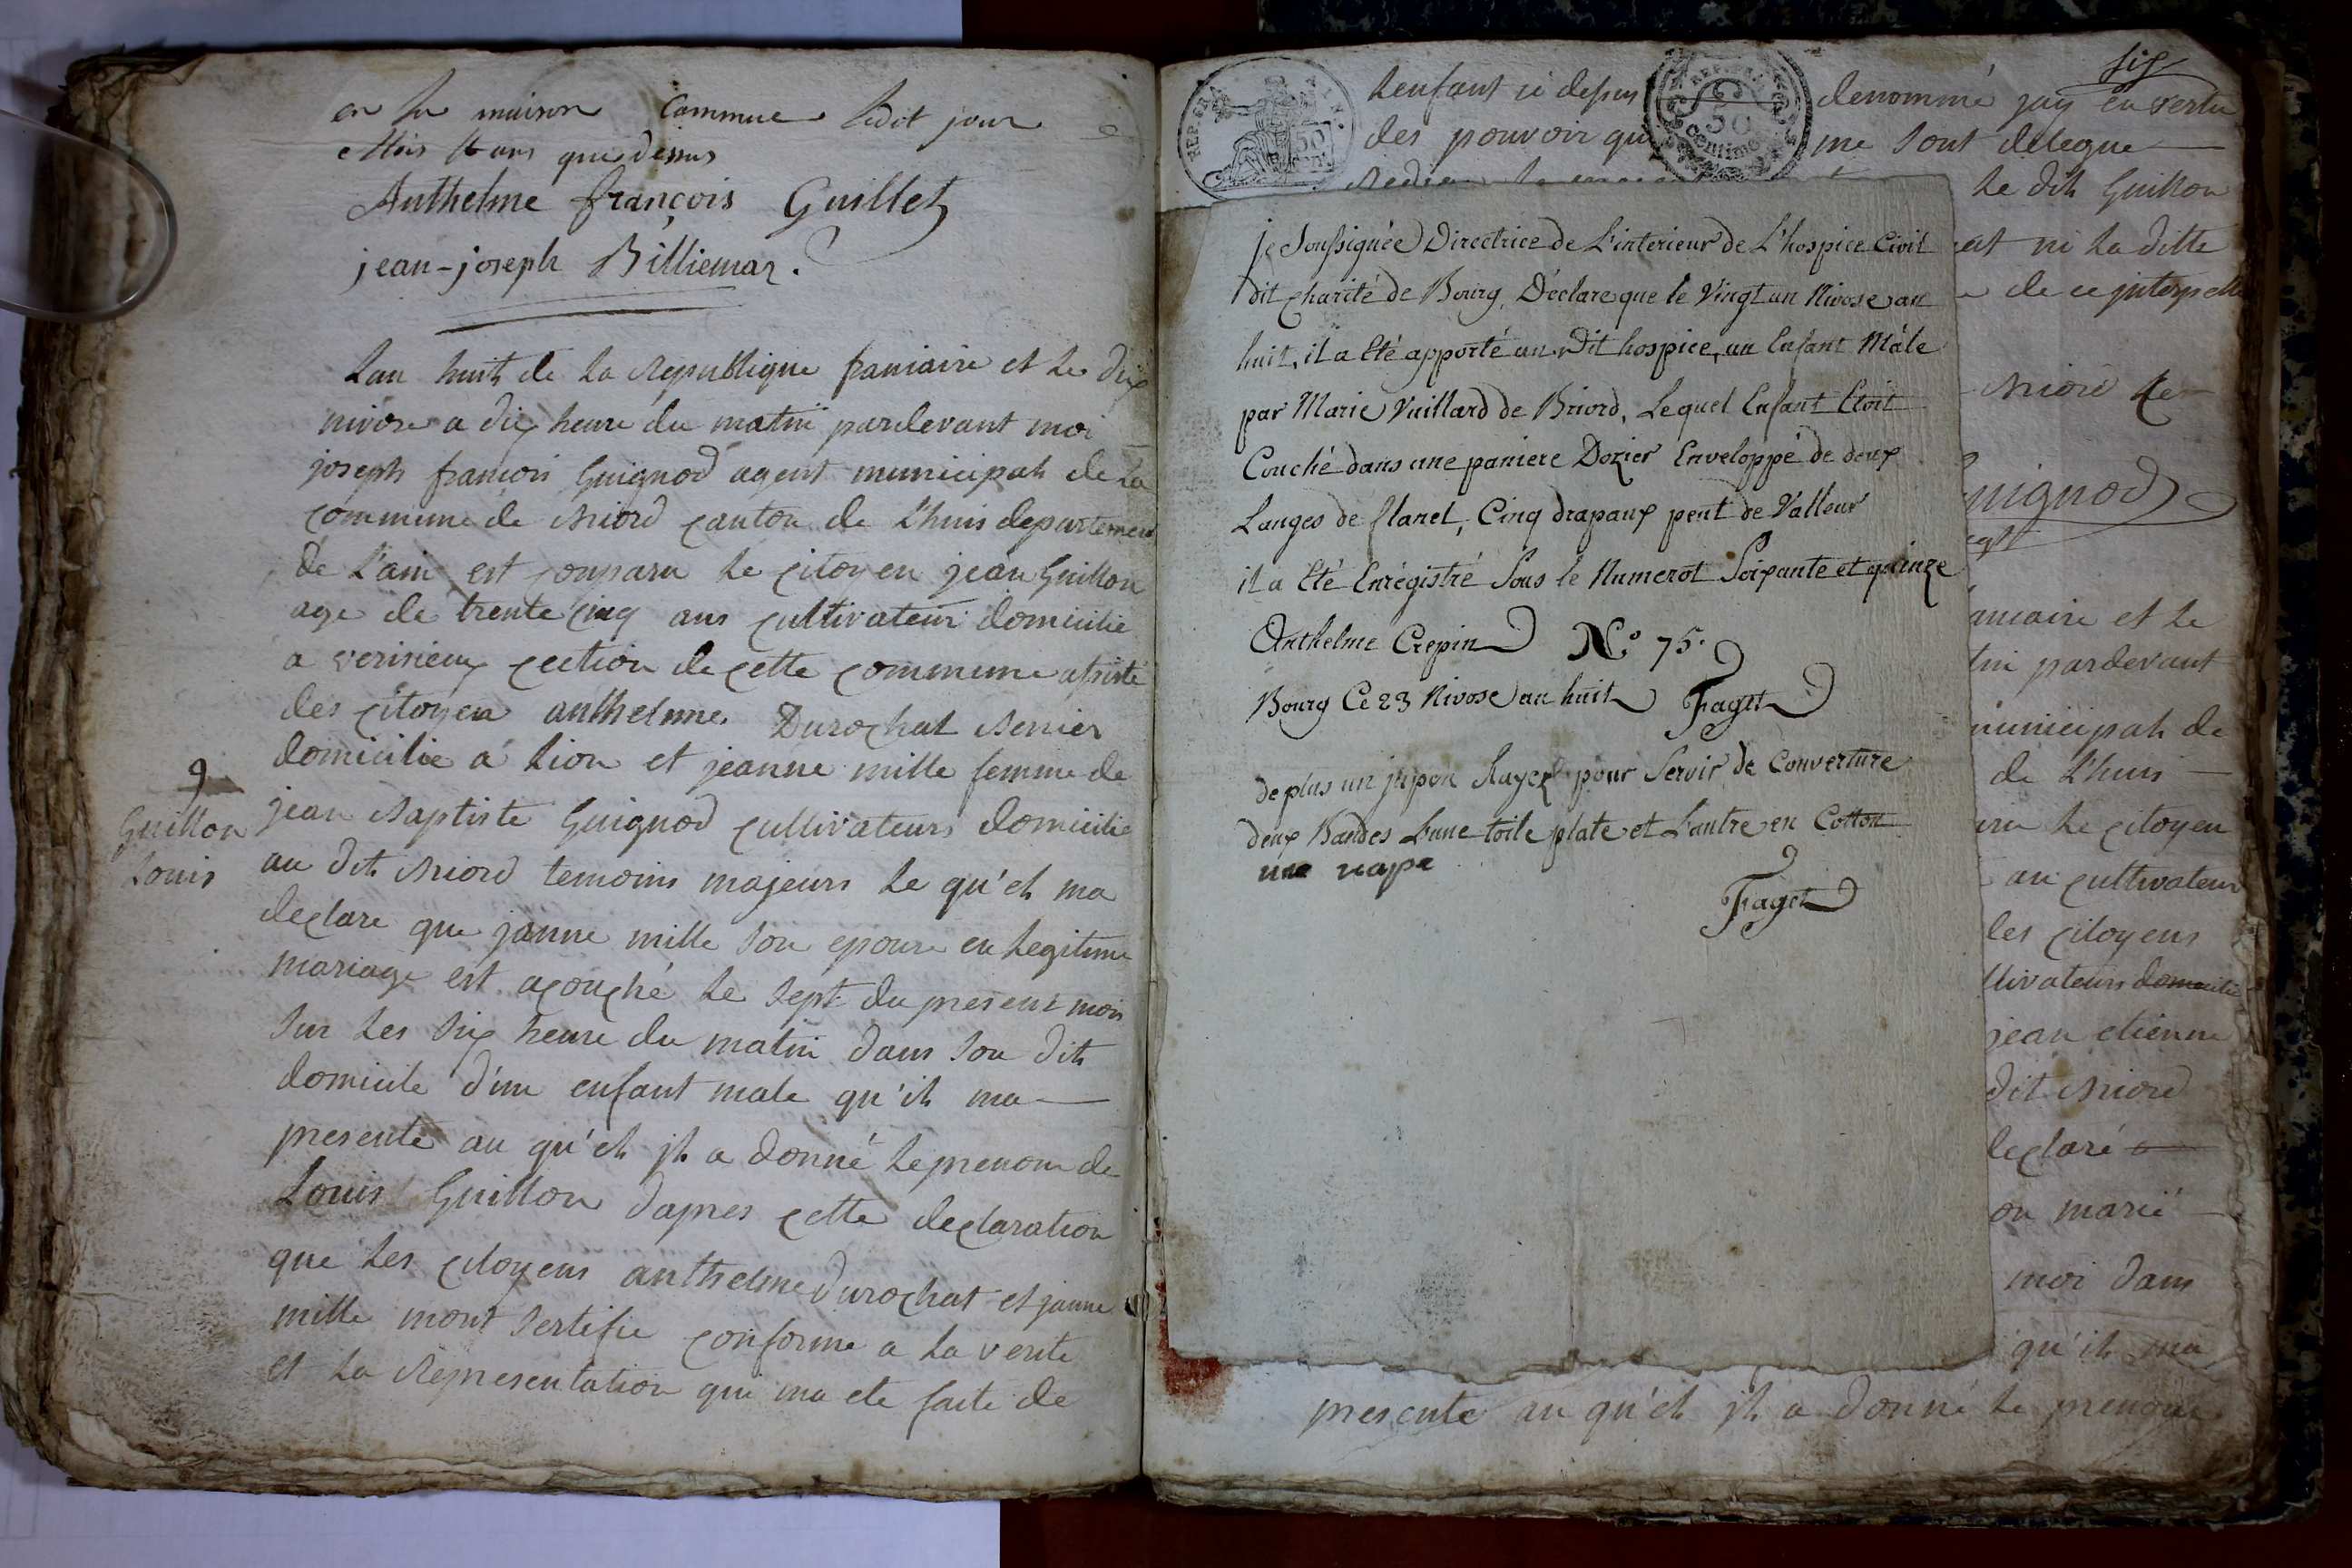 en la maison Commune Ledit jour
Mois & ans que dessus
Anthelme françois Guillet
jean-joseph Billiemaz.
Lan huit de la Republique francaire et le dix
nivose a dix heure du matin pardevant moi
joseph francois Guignod agent municipal de la
commune de Briord canton de L'huis departement
de L'ain est comparu le citoyen jean Guillon
age de trente cinq ans cultivateur domicilie
a verisieux cection de cette commune assisté
des citoyen anthelme Durochat
domicilie a Lion et jeanne mille femme de
9
Guillon
Louis
jean Baptiste Guignod cultivateurs domicilie
au dit Briord temoins majeurs le qu'el ma
declare que janne mille son epouse en Legitime
mariage est acouché le sept du present mois
sur les six heure du matin dans son dit
domicile d'un enfant male qu'il ma
presente au qu'el jl a donné le prenom de
Louis Guillon dapres cette declaration
que les citoyens anthelme Durochat et janne
mille mont sertifie conforme a la verite
et la Representation qui ma ete faite de
six
REP. FRA
50
REP. FRA
50
centime
Lenfant ci desus denommé jay en vertu
des pouvoir qui me sont delegue
le dit Guillon
ni la ditte
de ce jnterpelle
Briord le
Guignod
agt
je Soussignée Directrice de L'interieur de L'hospice Civil
dit charité de Bourg, Déclare que le Vingt un Nivose an
huit, il a été apporté au Dit hospice, un Enfant Mâle
par Marie Vuillard de Briord, Lequel Enfant Etoit
Couché dans une paniere Dozier Enveloppé de deux
Langes de flanel, Cinq drapaux peut de Valleur
il a été Enrégistré Sous le Numerot Soixante et quinze
Anthelme Crepin N.° 75.
Bourg Ce 23 Nivose an huit Faget
de plus un jupon Rayez pour Servir de Couverture
deux Bandes L'une toile plate et L'autre en Cotton
une nape
Faget
francaire et le
matin pardevant
municipal de
de L'huis
comparu le citoyen
an cultivateur
les citoyens
cultivateurs domicilie
jean etienne
dit Briord
declaré
marié
moi dans
qu'il ma
presente au qu'el jl a donné le prenom